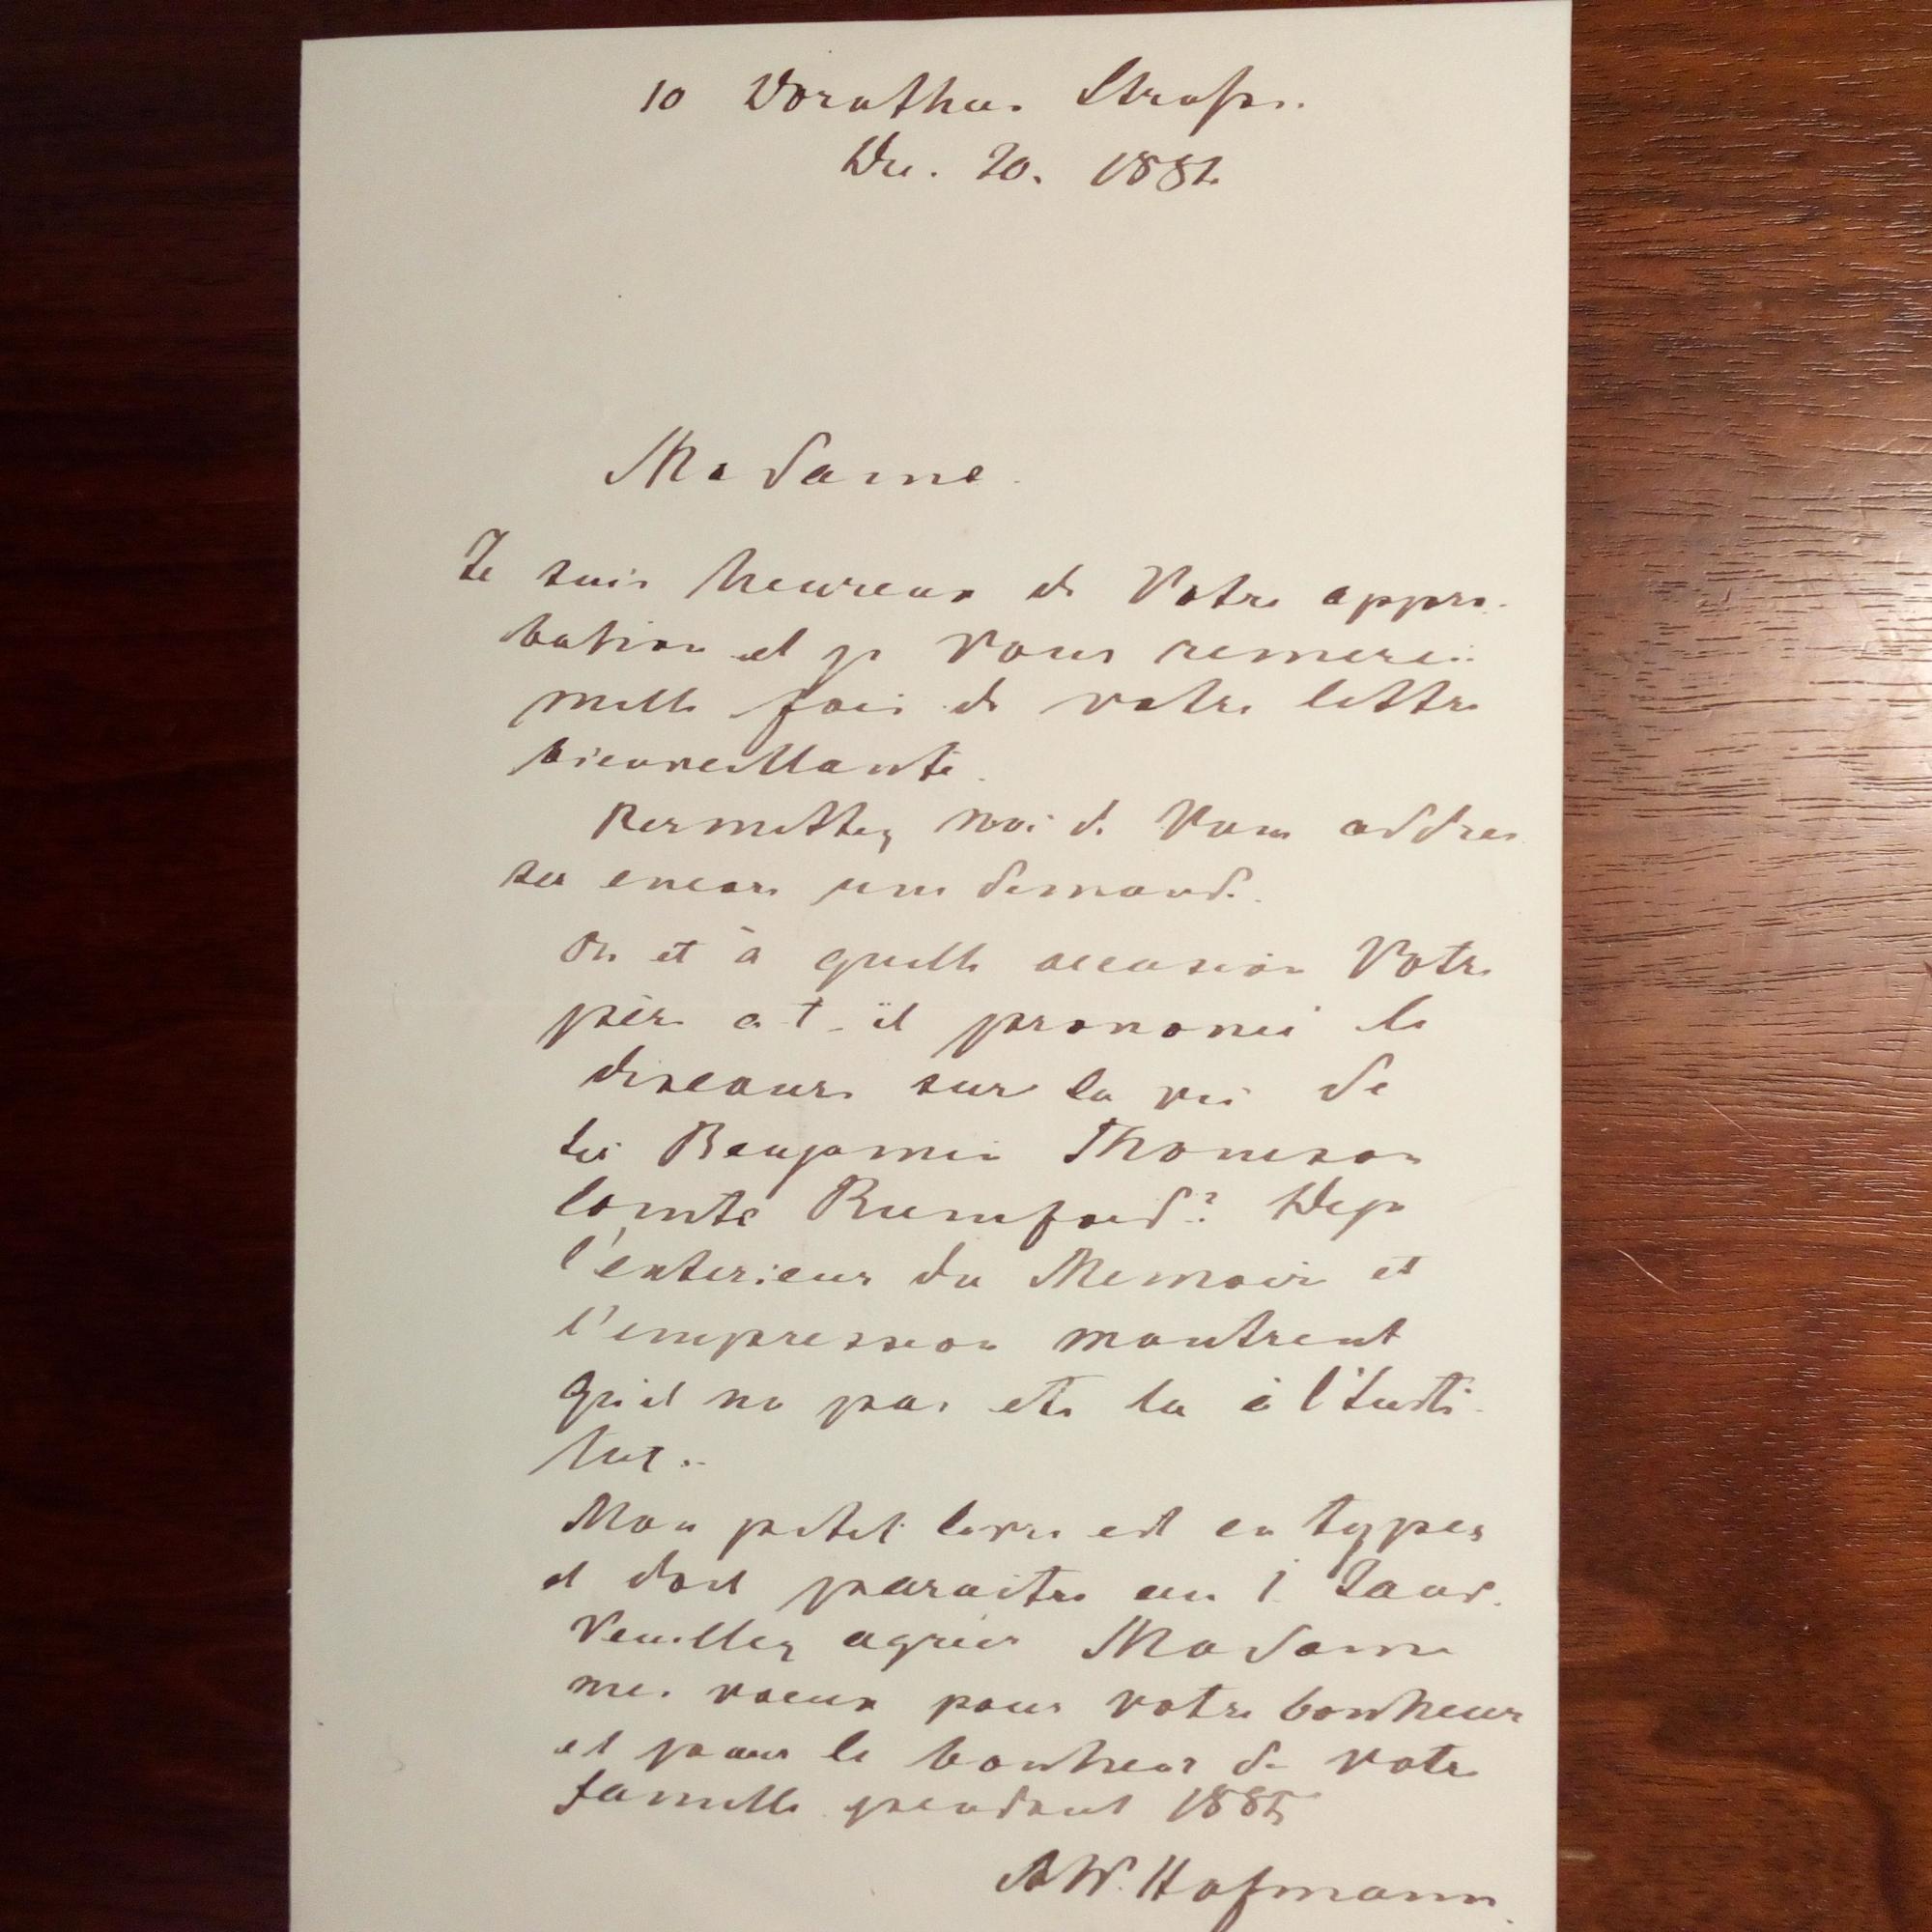 10 Dorotheen Strasse.
Dec. 20. 188
Madame.
Je suis heureux de Votre appro-
bation et je Vous remercie
mille fois de votre lettre
bienveillante.
Permettez moi de Vous addres
ser encore une demande.
Ou et à quelle occasion Votre
père a-t-il prononcé le
discours sur la vie de
Sir Benjamin Thomson
Comte Rumford?
l'exterieur du Memoire et
l'impression montrent
qu'il na pas été lu à l'Insti-
tut.
Mon petit livre est en types
et doit paraitre au 1 Janv.
Veuillez agréer Madame
mes voeux pour votre bonheur
et pour le bonheur de votre
famille pendant 188
AW. Hofmann